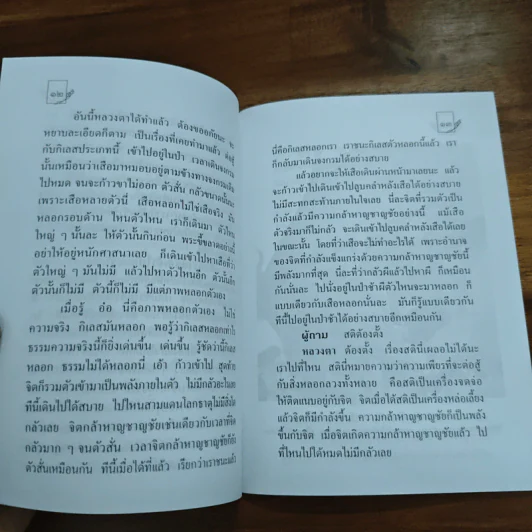 ๑๒
อันนี้หลวงตาได้ทำแล้ว ต้องขออภัยนะ
หยาบละเอียดก็ตาม เป็นเรื่องที่เคยทำมาแล้ว
กับกิเลสประเภทนี้ เข้าไปอยู่ในป่า เวลาเดินจงกรม
นั้นเหมือนว่าเสือมาหมอบอยู่ตามข้างทางจงกรม
ไปหมด จนจะก้าวขาไม่ออก ตัวสั่น กลัวขนาดนั้น
เพราะเสือหลายตัวนี้ เสือหลอกไม่ใช่เสือจริง
หลอกรอบด้าน ไหนตัวไหน เราก็เดินมา ตัวไหน
ใหญ่ ๆ นั้นละ ให้ตัวนั้นกินก่อน พระขี้ขลาดอย่างนี้
อย่าให้อยู่หนักศาสนาเลย ก็เดินเข้าไปหาเสือที่ว่า
ตัวใหญ่ ๆ มันไม่มี แล้วไปหาตัวไหนอีก ตัวนั้นก็
ตัวนั้นก็ไม่มี ตัวนี้ก็ไม่มี มีแต่ภาพหลอกตัวเอง
เมื่อรู้ อ๋อ นี่คือภาพหลอกตัวเอง ไม่ใช่
ความจริง กิเลสมันหลอก พอรู้ว่ากิเลสหลอกเท่านั้น
ธรรมความจริงนี้ก็ยิ่งเด่นขึ้น เด่นขึ้น รู้ชัดว่านี้กิเลส
หลอก ธรรมไม่ได้หลอกนี่ เอ้า ก้าวไป สุดท้าย
จิตก็รวมตัวเข้ามาเป็นพลังภายในตัว ไม่มีกลัวอะไรเลย
ทีนี้เดินไปได้สบาย ไปไหนสามแดนโลกธาตุไม่มีสิ่งใด
กลัวเลย จิตกล้าหาญชาญชัยเช่นเดียวกับเวลาที่จิต
กลัวมาก ๆ จนตัวสั่น เวลาจิตกล้าหาญชาญชัยก็
ตัวสั่นเหมือนกัน ทีนี้เมื่อได้ที่แล้ว เรียกว่าเราชนะแล้ว
๑๓
นี่คือกิเลสหลอกเรา เราชนะกิเลสตัวหลอกนี้แล้ว เรา
ก็กลับมาเดินจงกรมได้อย่างสบาย
แล้วอยากจะให้เสือเดินผ่านหน้ามาเลยนะ แล้ว
จะก้าวเข้าไปเดินเข้าไปลูบคลำหลังเสือได้อย่างสบาย
ไม่มีสะทกสะท้านภายในใจเลย นี่ละจิตที่รวมตัวเป็น
กำลังแล้วมีความกล้าหาญชาญชัยอย่างนี้ แม้เสือ
ตัวจริงมาก็ไม่กลัว จะเดินเข้าไปลูบคลำหลังเสือได้เลย
ในขณะนั้น โดยที่ว่าเสือจะไม่ทำอะไรได้ เพราะอำนาจ
ของจิตที่กำลังแข็งแกร่งด้วยความกล้าหาญชาญชัยนี้
มีพลังมากที่สุด นี่ละที่ว่ากลัวผีแล้วไปหาผี ก็เหมือน
กันนั่นละ ไปนั่งอยู่ในป่าช้าผีตัวไหนจะมาหลอก ก็
แบบเดียวกับเสือหลอกนั่นละ มันก็รู้แบบเดียวกัน
ทีนี้ไปอยู่ในป่าช้าได้อย่างสบายอีกเหมือนกัน
ผู้ถาม สติต้องตั้ง
หลวงตา ต้องตั้ง เรื่องสตินี่เผลอไม่ได้นะ
เราไปที่ไหน สตินี่หมายความว่าความเพียรที่จะต่อสู้
กับสิ่งหลอกลวงทั้งหลาย คือสติเป็นเครื่องจดจ่อ
ให้ติดแนบอยู่กับจิต จิตเมื่อได้สติเป็นเครื่องหล่อเลี้ยง
แล้วจิตก็มีกำลังขึ้น ความกล้าหาญชาญชัยก็เป็นพลัง
ขึ้นกับจิต เมื่อจิตเกิดความกล้าหาญชาญชัยแล้ว ไป
ที่ไหนไปได้หมดไม่มีกลัวเลย